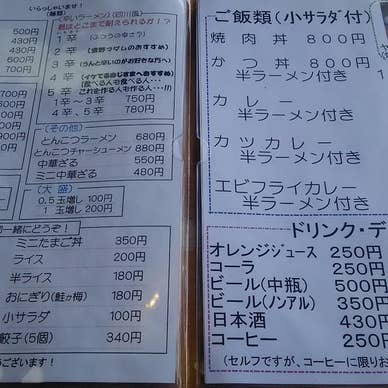 いらっしゃいませ!
500円
430円
600円
700円
1辛
2辛
3辛
4辛
5辛
1辛~3辛 750円
4辛、5辛 780円
(その他)
とんこつラーメン 680円
とんこつチャーシューメン 880円
中華ざる 550円
ミニ中華ざる 480円
(大盛)
0.5玉増し 100円
1玉増し 200円
一緒にどうぞ!
ミニたまご丼 350円
ライス 200円
半ライス 180円
おにぎり(鮭か梅) 180円
小サラダ 100円
餃子(5個) 340円
うございます!
ご飯類(小サラダ付)
焼肉丼 800円
かつ丼 800円
半ラーメン付き
カレー
半ラーメン付き
カツカレー
半ラーメン付き
エビフライカレー
半ラーメン付き
ドリンク・デ
オレンジジュース 250円
コーラ 250円
ビール(中瓶) 500円
ビール(ノンアル) 350円
日本酒 430円
コーヒー 250円
(セルフですが、コーヒーに限りお